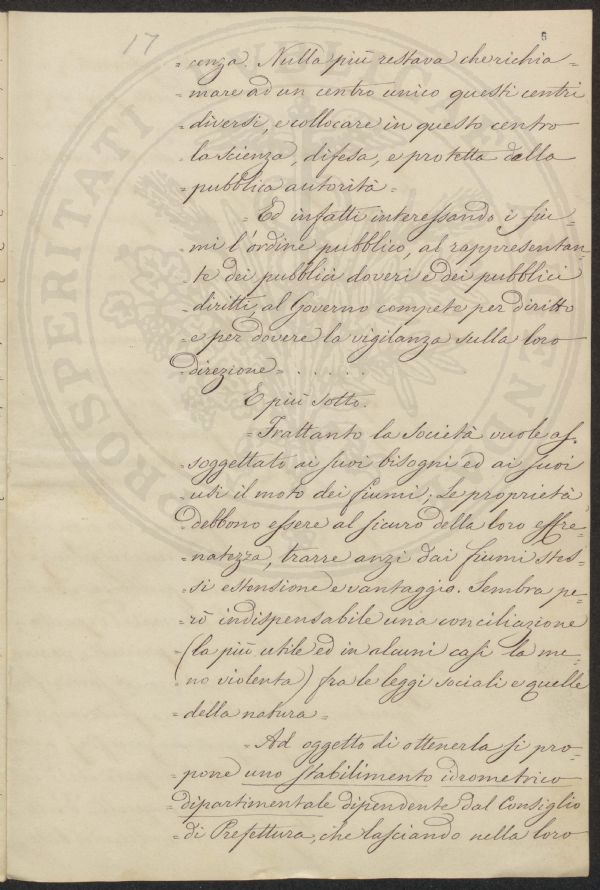 17
5
=cenza. Nulla più restava che richia=
=mare ad un centro unico questi centri
=diversi, e collocare in questo centro
=la scienza, difesa, e protetta dalla
=pubblica autorità=
=Ed infatti interessando i fiu=
=mi l'ordine pubblico, al rappresentan=
=te dei pubblici doveri e dei pubblici
=diritti, al Governo compete per diritto
=e per dovere la vigilanza sulla loro
=direzione= . . . . . .
E più sotto.
=Frattanto la Società vuole as=
=soggettato ai suoi bisogni ed ai suoi
=usi il moto dei fiumi; Le proprietà
=debbono essere al sicuro della loro effre=
=natezza, trarre anzi dai fiumi stes=
=si estensione e vantaggio. Sembra pe=
=rò indispensabile una conciliazione
=(la più utile ed in alcuni casi la me=
=no violenta) fra le leggi sociali e quelle
=della natura=
=Ad oggetto di ottenerla si pro=
=pone uno stabilimento idrometrico
=dipartimentale dipendente dal Consiglio
=di Prefettura, che lasciando nella loro
PROSPERITATI PUBLIC